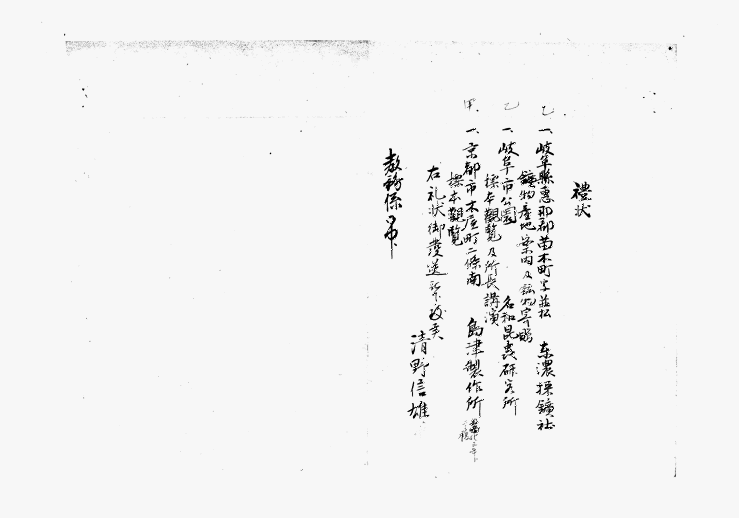 禮状
乙 一、岐阜縣惠那郡苗木町字並松 東濃採鑛社
鑛物産地案内及鉱物寄贈
乙 一、岐阜市公園 名和昆虫研究所
標本觀覧及所長講演
甲 一、京都市木屋町二條南 島津製作所
標本觀覧
右礼状御發送
清野信雄
教務係